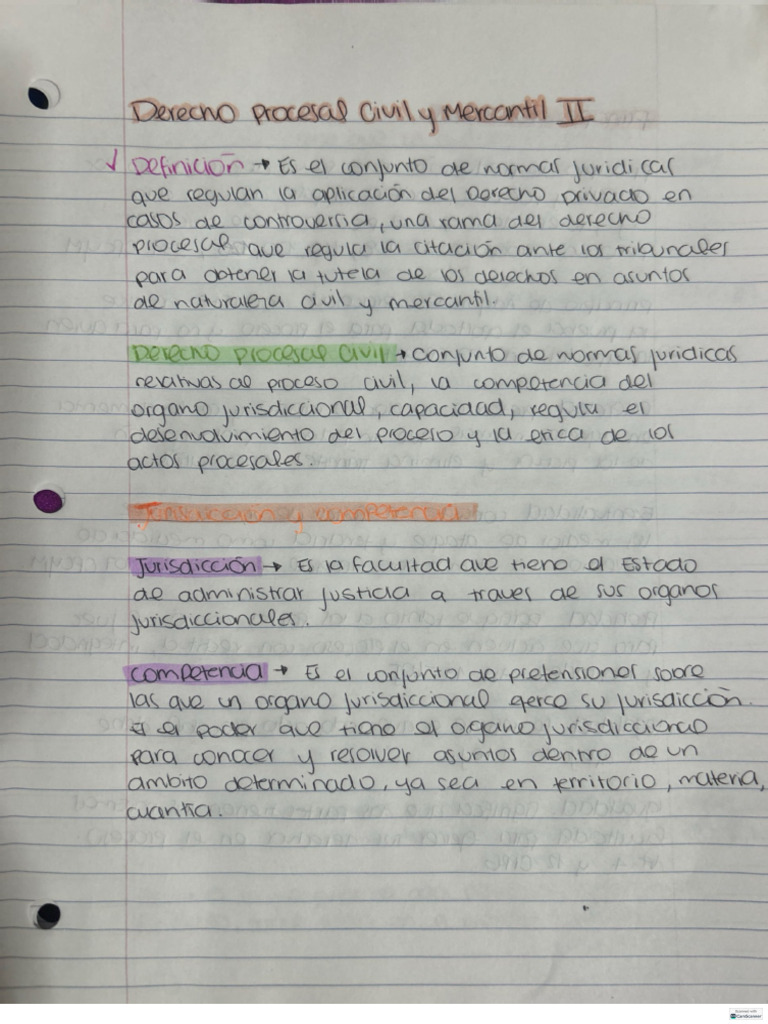 Derecho Procesal Civil y Mercantil II
✓ Definición → Es el conjunto de normas juridicas
que regulan la aplicación del Derecho privado en
casos de controversia, una rama del derecho
procesal que regula la citación ante los tribunales
para obtener la tutela de los derechos en asuntos
de naturaleza civil y mercantil.
Derecho procesal civil → conjunto de normas juridicas
relativas al proceso civil, la competencia del
organo jurisdiccional, capacidad, regula el
desenvolvimiento del proceso y la etica de los
actos procesales.
Jurisdicción y competencia
Jurisdicción → Es la facultad que tiene el Estado
de administrar justicia a traves de sus organos
jurisdiccionales.
Competencia → Es el conjunto de pretensiones sobre
las que un organo jurisdiccional ejerce su jurisdicción.
Es el poder que tiene el organo jurisdiccional
para conocer y resolver asuntos dentro de un
ambito determinado, ya sea en territorio, materia,
cuantia.
Scanned with
CamScanner